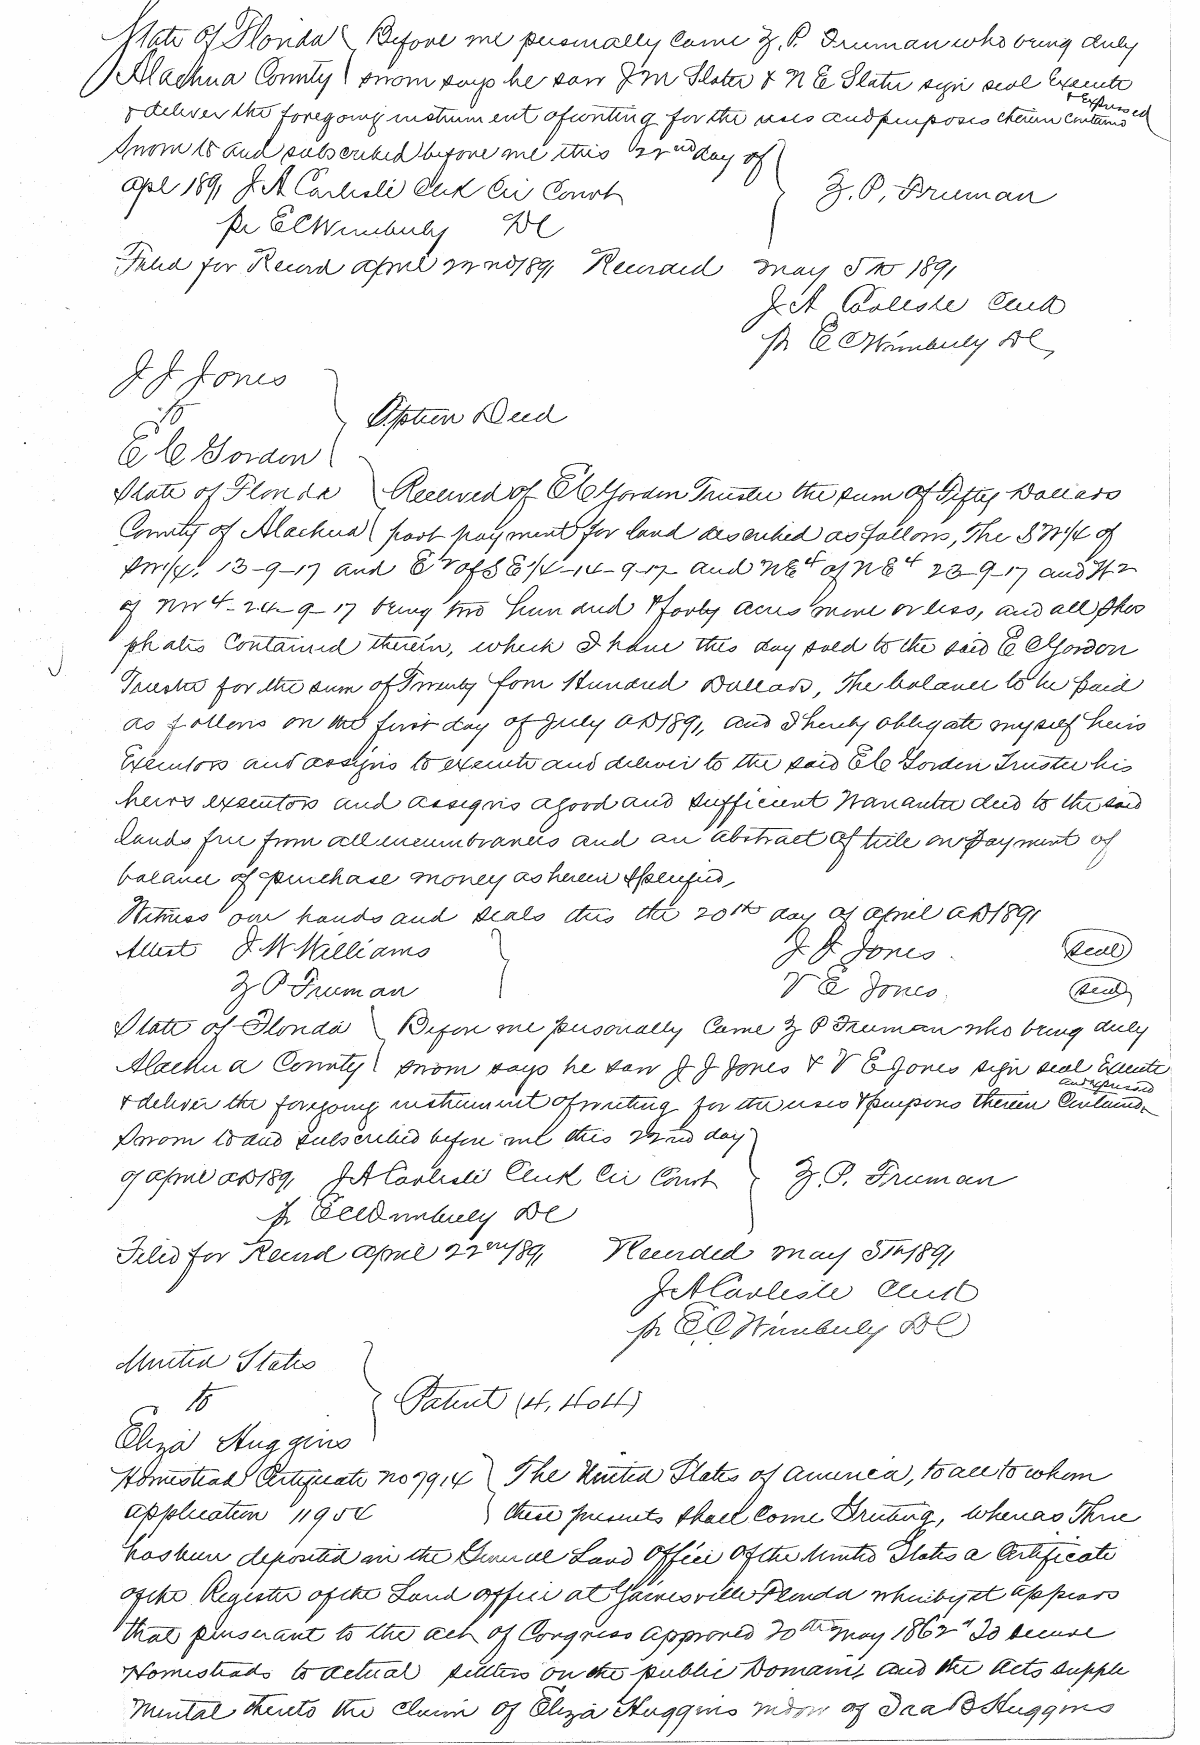 State of Florida Before me personally came Z. P. Truman who being duly
Alachua County sworn says he saw J M Slater & N E Slater sign seal Execute
& Expressed
& deliver the foregoing instrument of writing for the uses and purposes therein contained
Sworn to and subscribed before me this 22nd day of
Apl 1891 J A Carlisle Clerk Cir Court Z. P. Truman
pr E C Wimberly DC
Filed for Record April 22nd 1891 Recorded May 5th 1891
J A Carlisle Clerk
pr E C Wimberly DC
J J Jones
to Option Deed
E C Gordon
State of Florida Received of E C Gordon Trustee the sum of Fifty Dollars
County of Alachua part payment for land described as follows, The SW 1/4 of
SW 1/4. 13-9-17 and E 2 of SE 1/4-14-9-17 and NE 4 of NE 4 23-9-17 and W 2
of NW 4-24-9-17 being two hundred & forty acres more or less, and all Phos
phates contained therein, which I have this day sold to the said E C Gordon
Trustee for the sum of Twenty four Hundred Dollars, The balance to be paid
as follows on the first day of July AD 1891, and I hereby obligate myself heirs
Executors and assigns to execute and deliver to the said E C Gordon Trustee his
heirs executors and assigns a good and sufficient Warrantee deed to the said
lands free from all incumbrances and an abstract of title on payment of
balance of purchase money as herein specified,
Witness our hands and seals this the 20th day of April AD 1891
Attest J W Williams J J Jones seal
Z P Truman V E Jones. seal
State of Florida Before me personally came Z P Truman who being duly
Alachua County sworn says he saw J J Jones & V E Jones sign seal Execute
and expressed
& deliver the foregoing instrument of writing for the uses & purposes therein Contained.
Sworn to and subscribed before me this 22nd day
of April AD 1891 J A Carlisle Clerk Cir Court Z. P. Truman
pr E C Wimberly DC
Filed for Record April 22nd 1891 Recorded May 5th 1891
J A Carlisle Clerk
pr E. C. Wimberly DC
United States
to Patent (4, 404)
Eliza Huggins
Homestead Certificate no 7914 The United States of America, to all to whom
Application 11954 these presents shall come Greeting, whereas There
has been deposited in the General Land Office of the United States a Certificate
of the Register of the Land office at Gainesville Florida whereby it appears
that pursuant to the act of Congress approved 20th May 1862 "To secure
Homesteads to actual settlers on the public Domain", and the Acts supple
mental thereto the claim of Eliza Huggins widow of Ira B Huggins